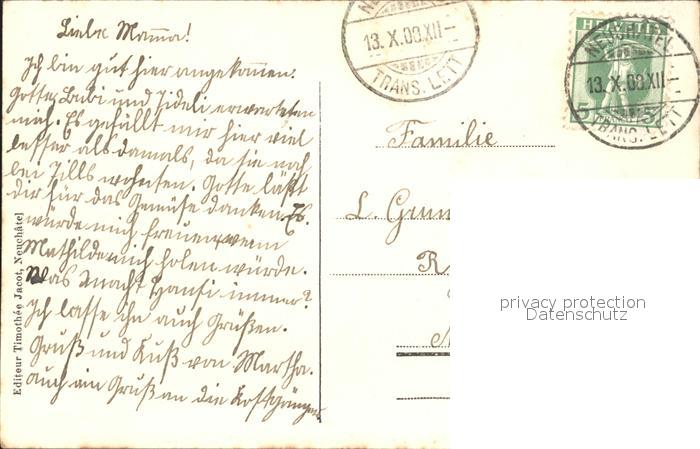 Liebe Mama!
Ich bin gut hier angekommen.
Gotte, Bubi und Fideli erwarteten
mich. Es gefällt mir hier viel
besser als damals, da sie noch
bei Tills wohnten. Gotte läßt
dir für das Gemüse danken. Es
würde mich freuen wenn
Mathilde mich holen würde.
Was macht Hansi immer?
Ich lasse ihn auch Grüßen.
Gruß und Kuß von Martha.
Auch ein Gruß an die Kostgänger
Editeur Timothée Jacot, Neuchâtel
13. X. 08. XII –
TRANS. LETT
HELVETIA
5
13. X. 08. XII
TRANS. LETT
Familie
L.
privacy protection
Datenschutz